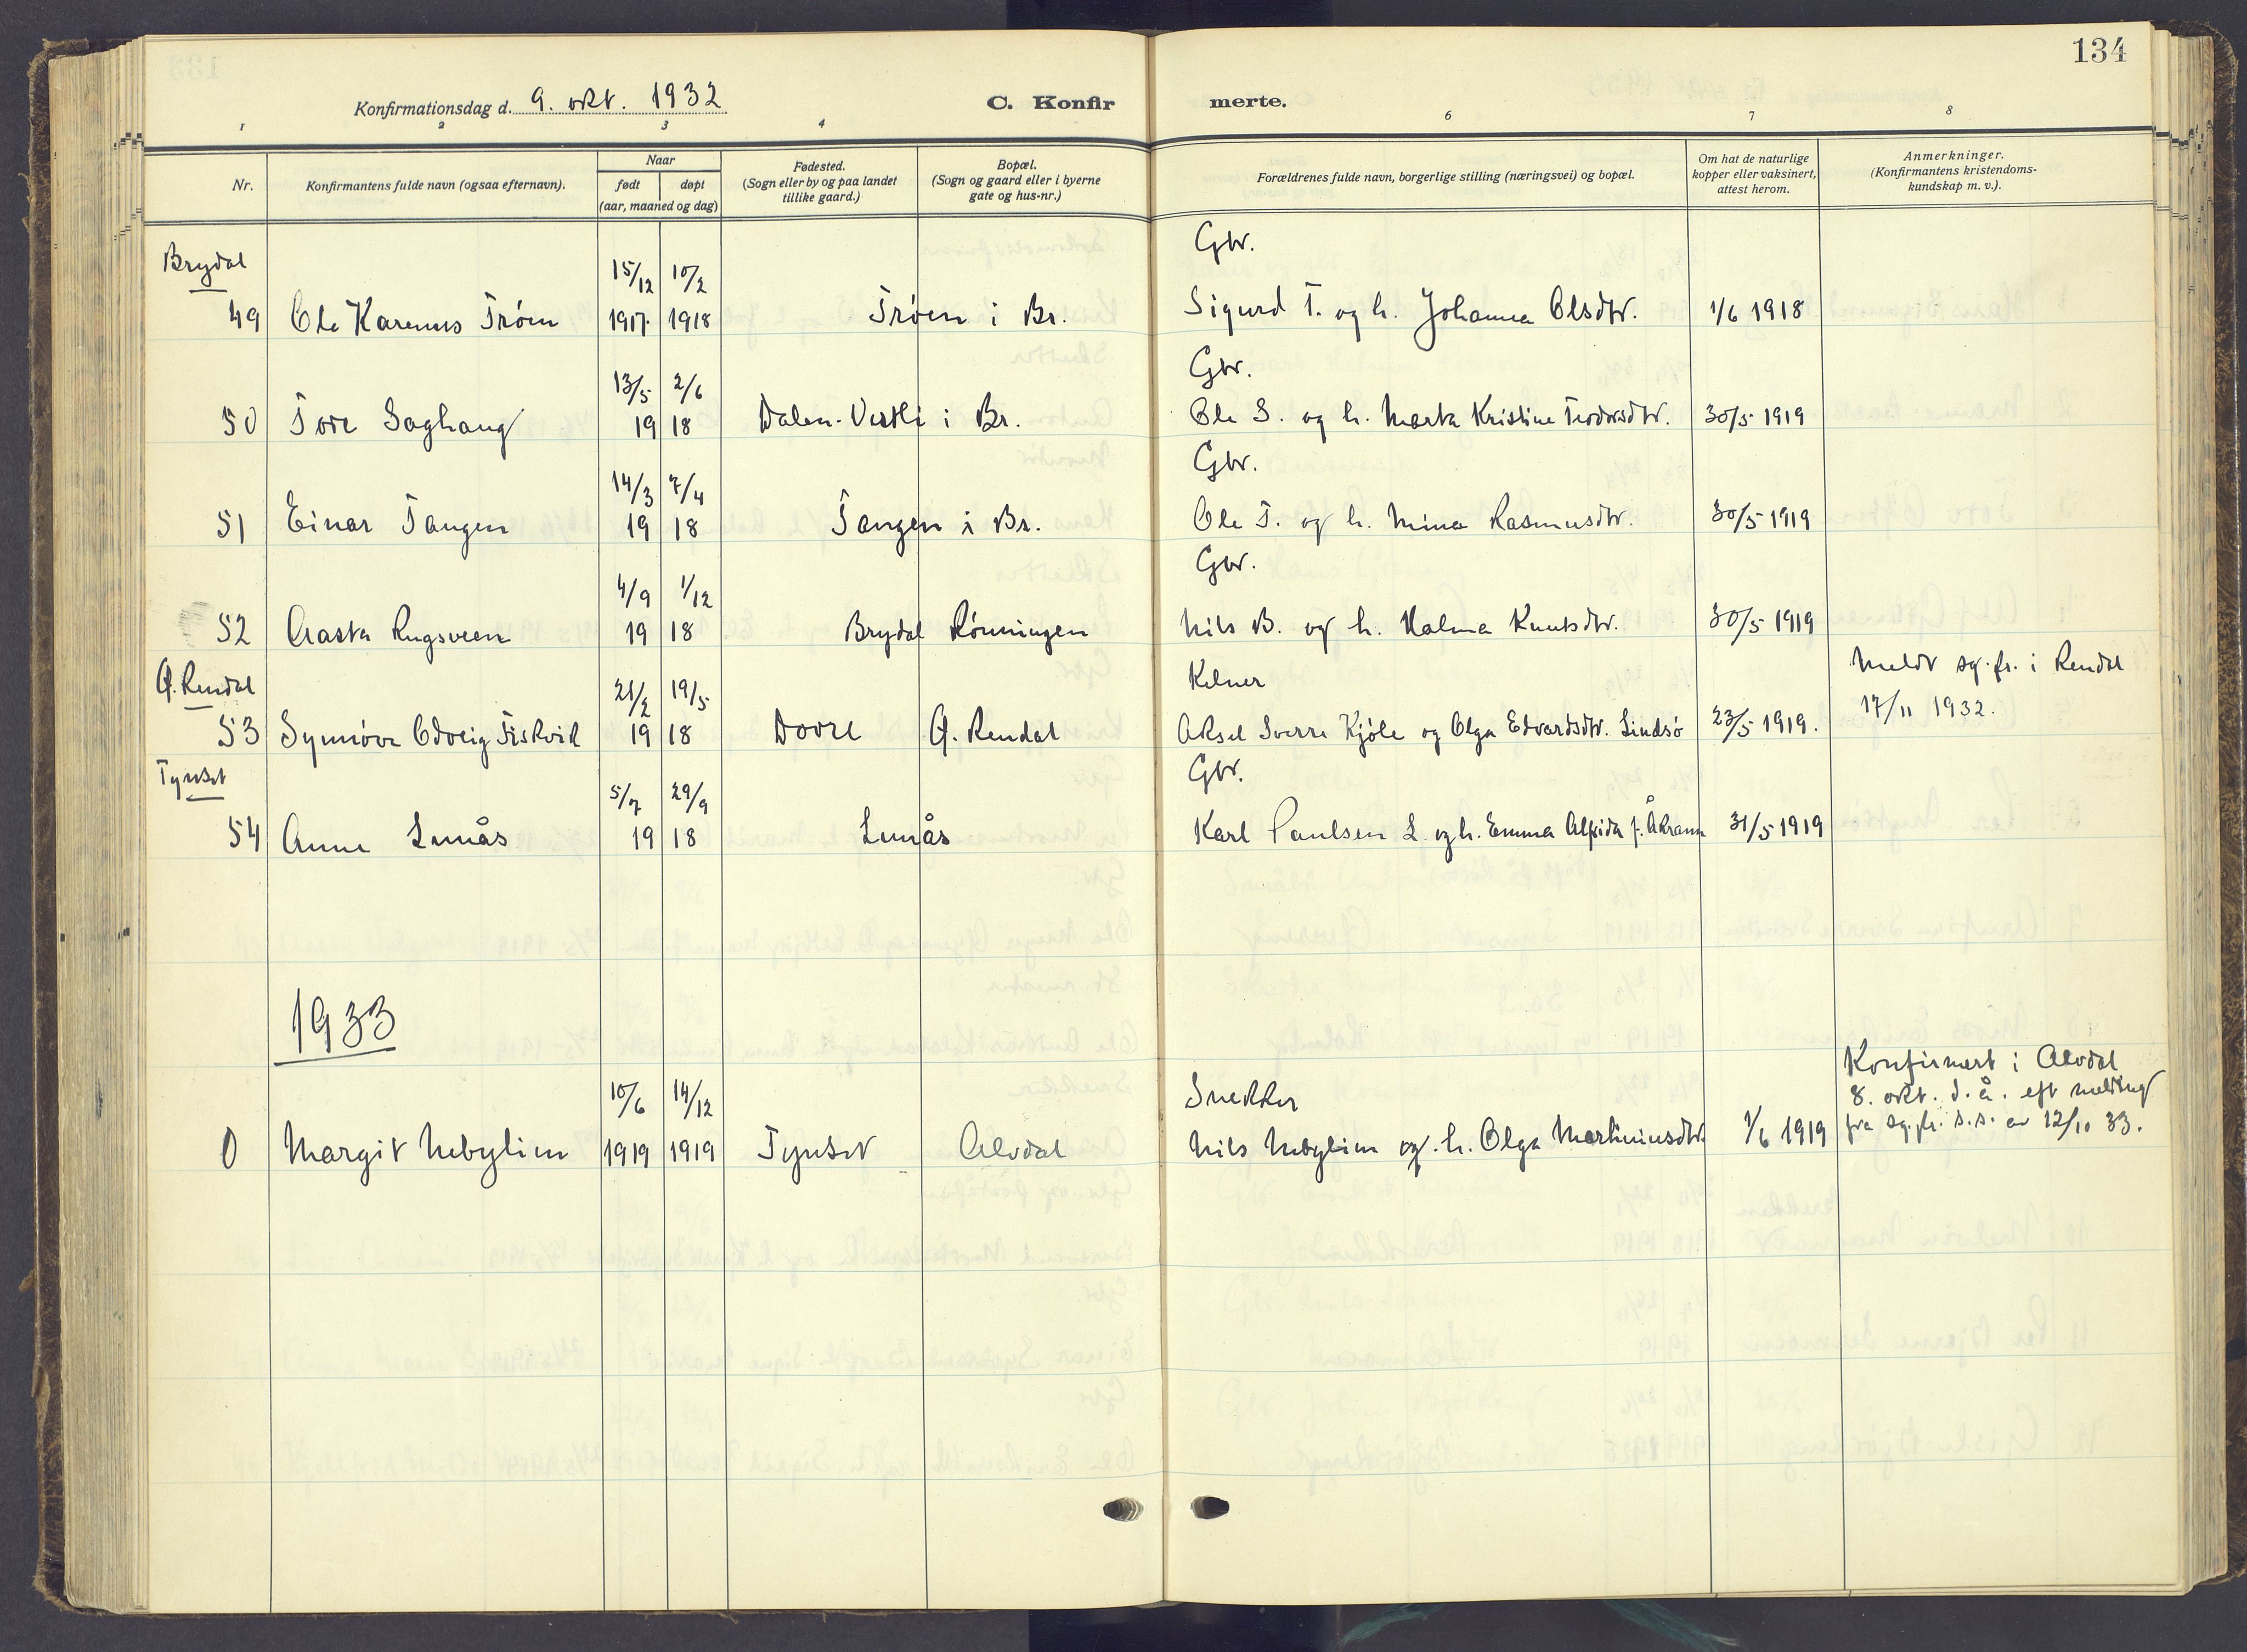 134
Konfirmationsdag d. 9. okt. 1932
C. Konfir merte.
1 2 3 4 6 7 8
Nr.
Konfirmantens fulde navn (ogsaa efternavn).
Naar
født døpt
(aar, maaned og dag)
Fødested.
(Sogn eller by og paa landet
tillike gaard.)
Bopæl.
(Sogn og gaard eller i byerne
gate og hus-nr.)
Forældrenes fulde navn, borgerlige stilling (næringsvei) og bopæl.
Om hat de naturlige
kopper eller vaksinert,
attest herom.
Anmerkninger.
(Konfirmantens kristendoms-
kundskap m. v.).
Brydal 15/12 10/2 Gbr.
49 Ole Karenus Trøen 1917 1918 Trøen i Br. Sigurd T. og h. Johanna Olsdtr. 1/6 1918
13/5 2/6 Gbr.
50 Tore Saghaug 19 18 Dalen-Vestli i Br. Ole S. og h. Marta Kristine 30/5 1919
14/3 7/4 Gbr.
51 Einar Tangen 19 18 Tangen i Br. Ole T. og h. Mina Rasmusdtr. 30/5 1919
4/9 1/12 Gbr.
52 Aasta Rugsveen 19 18 Brydal Rønningen Nils B. og h. Halma Knutsdtr. 30/5 1919
Ø. Rendal 21/2 19/5 Kelner Meldt sg.pr. i Rendal
53 Synnøve Odveig Fiskvik 19 18 Dovre Ø. Rendal Aksel Sverre Kjøle og Olga Edvardsdtr. Lindsø 23/5 1919. 17/11 1932.
Tynset 5/7 29/9 Gbr.
54 Anne Lunås 19 18 Lunås Karl Paulsen L. og h. Emma Alfida f. Åkrann 31/5 1919
1933
10/6 14/12 Snekker Konfirmert i Alvdal
8. okt. d.å. eft melding
0 Margit Nebylien 1919 1919 Tynset Alvdal Nils Nebylien og h. Olga Martiniusdtr. 1/6 1919 fra sg.pr. s.s. av 12/10 33.